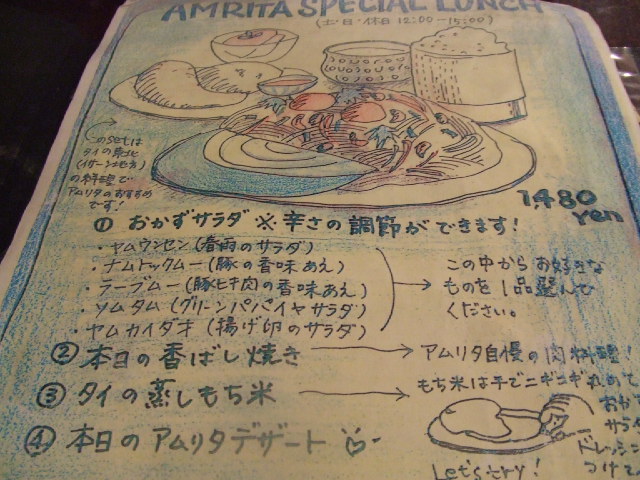 AMRITA SPECIAL LUNCH
(土・日・休日 12:00-15:00)
このsetは
タイの東北
(イサーン地方)
の料理で
アムリタのおすすめ
です!
1,480
yen
① おかずサラダ ※ 辛さの調節ができます!
・ヤムウンセン (春雨のサラダ)
・ナムトックムー (豚の香味あえ)
・ラープムー (豚ヒキ肉の香味あえ)
・ソムタム (グリーンパパイヤサラダ)
・ヤムカイダオ (揚げ卵のサラダ)
この中からお好きな
ものを1品選んで
ください。
② 本日の香ばし焼き
アムリタ自慢の肉料理!
③ タイの蒸しもち米
もち米は手でニギニギ丸めて
おかず
サラダ
ドレッシン
つけて
Let's try!
④ 本日のアムリタデザート